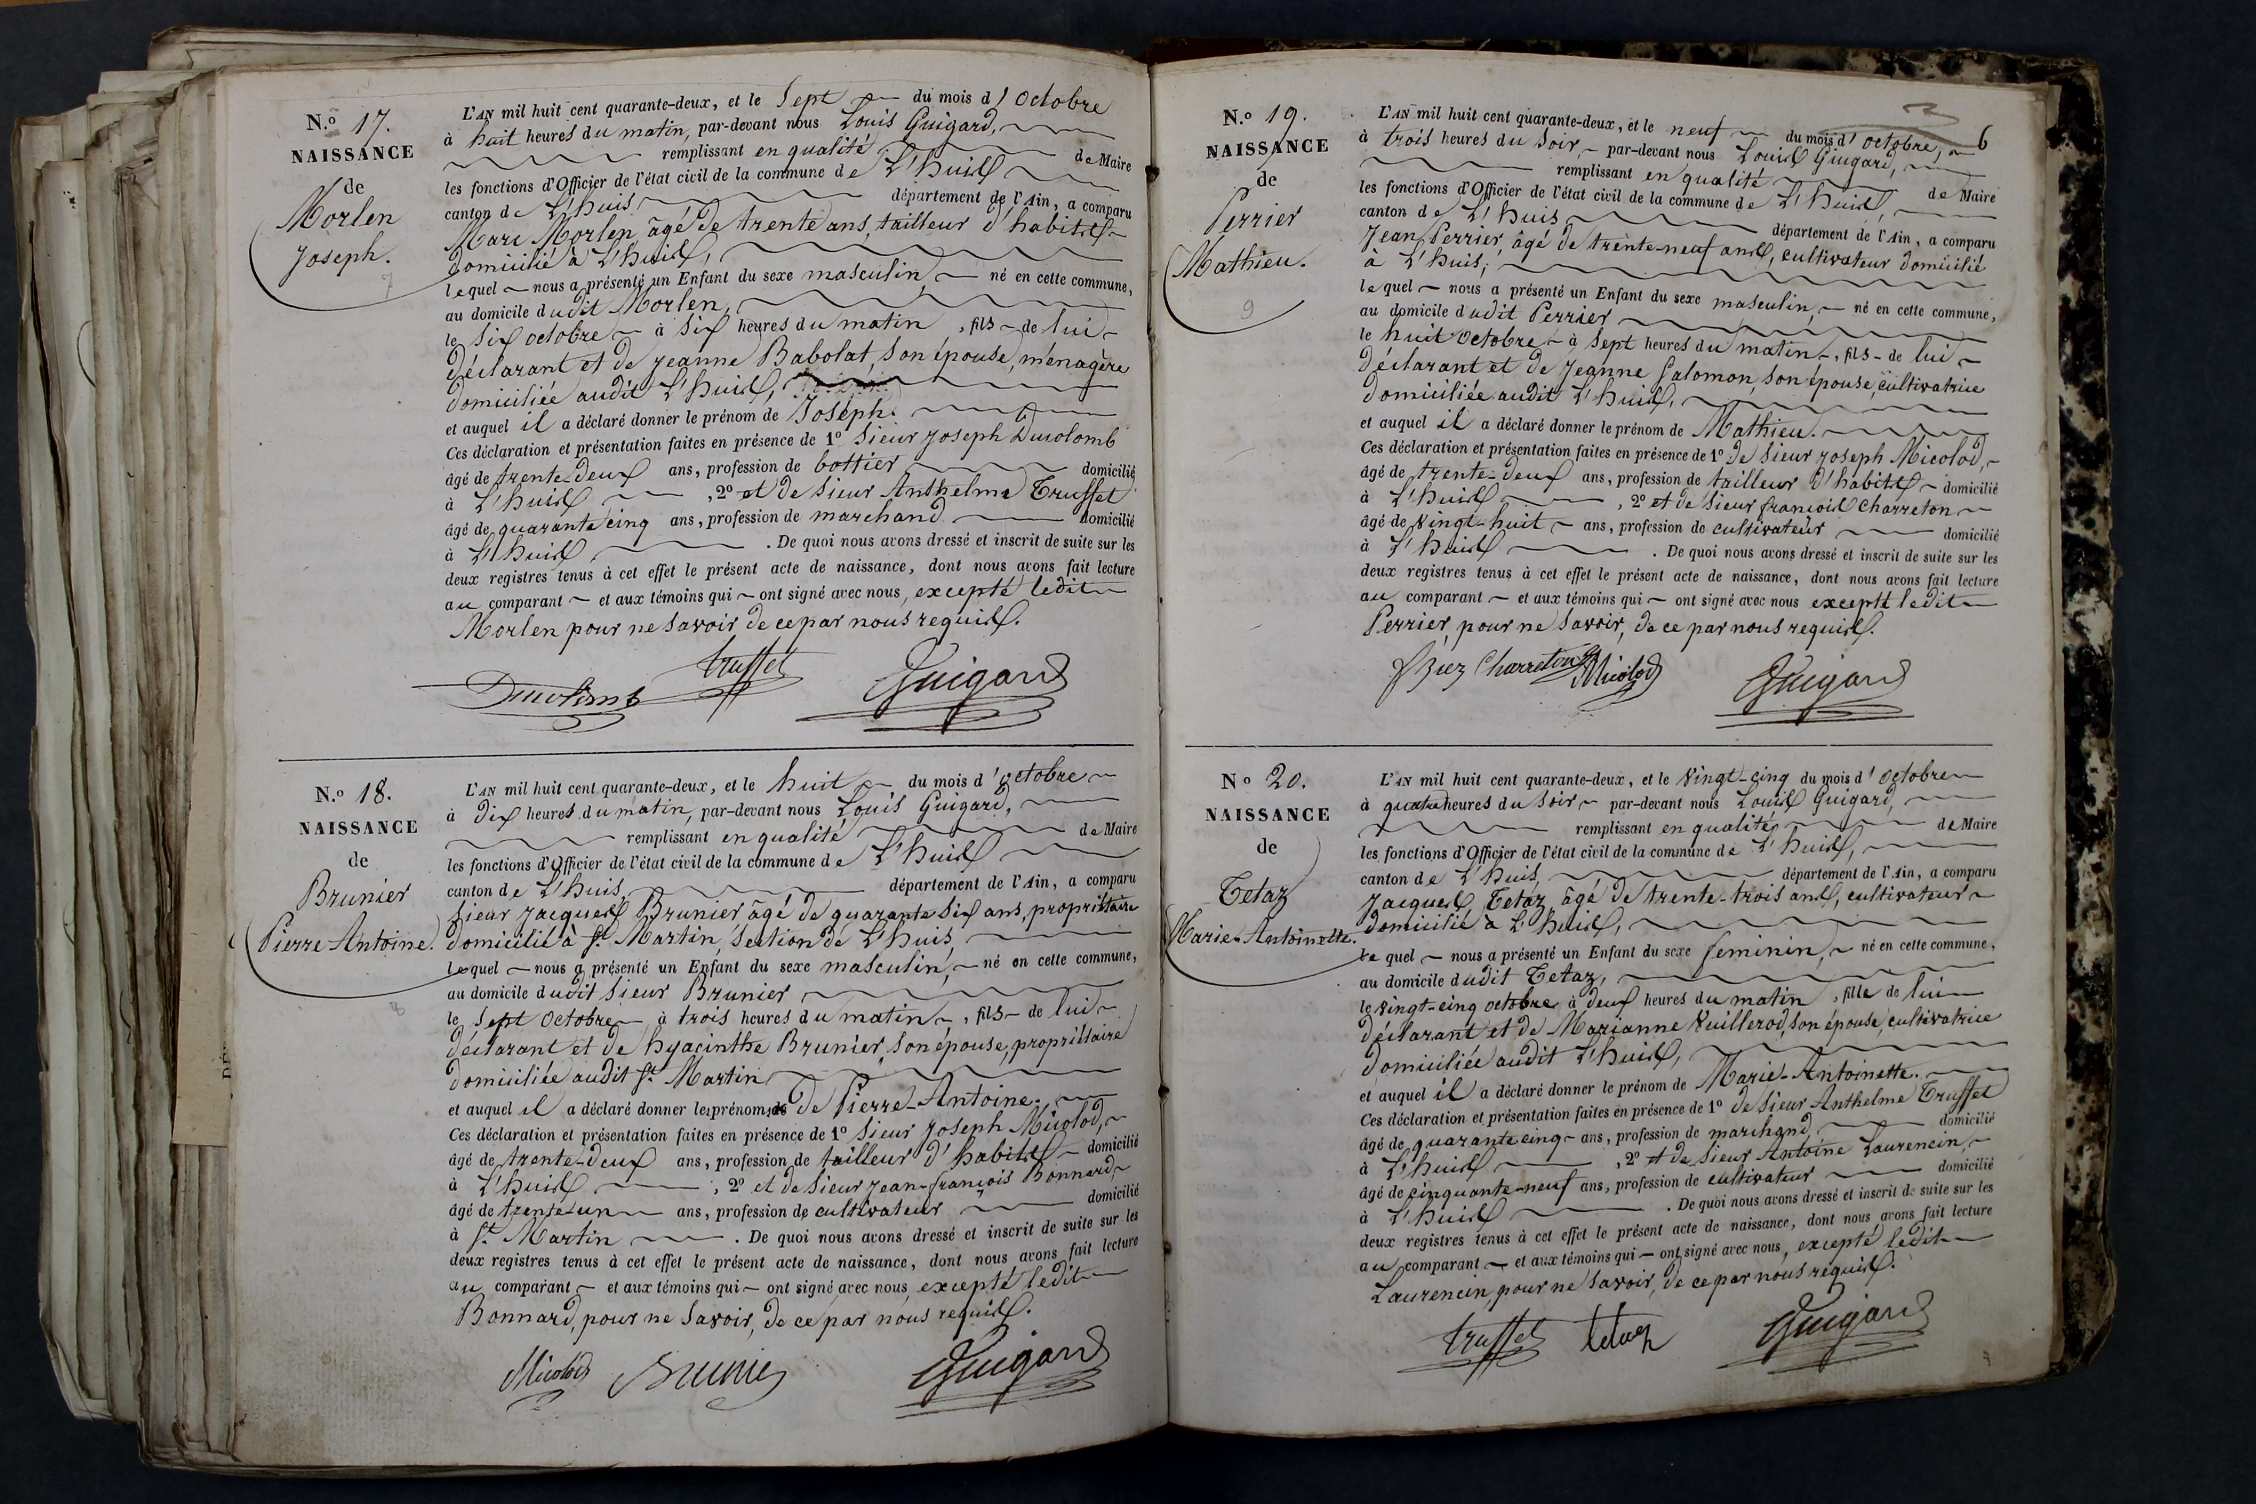 N.o 17.
NAISSANCE
de
Morlen
Joseph.
7
L'AN mil huit cent quarante-deux, et le Sept du mois d'Octobre
à huit heures du matin, par-devant nous Louis Guigard,
remplissant en qualité de Maire
les fonctions d'Officier de l'état civil de la commune de L'huis
canton de L'huis département de l'Ain, a comparu
Marc Morlen âgé de trente ans, tailleur d'habits
domicilié à L'huis,
lequel nous a présenté un Enfant du sexe masculin, né en cette commune,
au domicile dudit Morlen,
le six octobre à six heures du matin, fils de lui
déclarant et de Jeanne Babolat, son épouse, ménagère
domiciliée audit L'huis,
et auquel il a déclaré donner le prénom de Joseph.
Ces déclaration et présentation faites en présence de 1o Sieur Joseph Ducolomb
âgé de trente-deux ans, profession de bottier domicilié
à L'huis, 2o et de Sieur Anthelme Truffet
âgé de quarante cinq ans, profession de marchand domicilié
à L'huis. De quoi nous avons dressé et inscrit de suite sur les
deux registres tenus à cet effet le présent acte de naissance, dont nous avons fait lecture
au comparant et aux témoins qui ont signé avec nous, excepté ledit
Morlen pour ne savoir de ce par nous requis.
Ducolomb truffet Guigard
N.o 18.
NAISSANCE
de
Brunier
Pierre Antoine.
8
L'AN mil huit cent quarante-deux, et le huit du mois d'octobre
à dix heures du matin, par-devant nous Louis Guigard,
remplissant en qualité de Maire
les fonctions d'Officier de l'état civil de la commune de L'huis
canton de L'huis, département de l'Ain, a comparu
Sieur Jacques Brunier âgé de quarante six ans, propriétaire
domicilié à St Martin, section de L'huis,
lequel nous a présenté un Enfant du sexe masculin, né en cette commune,
au domicile dudit Sieur Brunier
le sept Octobre à trois heures du matin, fils de lui
déclarant et de hyacinthe Brunier, son épouse, propriétaire
domiciliée audit St Martin
et auquel il a déclaré donner les prénoms de Pierre-Antoine.
Ces déclaration et présentation faites en présence de 1o Sieur Joseph Micolod,
âgé de trente-deux ans, profession de tailleur d'habits domicilié
à L'huis, 2o et de Sieur Jean-françois Bonnard,
âgé de trente-un ans, profession de cultivateur domicilié
à St Martin. De quoi nous avons dressé et inscrit de suite sur les
deux registres tenus à cet effet le présent acte de naissance, dont nous avons fait lecture
au comparant et aux témoins qui ont signé avec nous, excepté ledit
Bonnard, pour ne savoir, de ce par nous requis.
Micolod Brunier Guigard
6
N.o 19.
NAISSANCE
de
Perrier
Mathieu.
9
L'AN mil huit cent quarante-deux, et le neuf du mois d'octobre,
à trois heures du soir, par-devant nous Louis Guigard,
remplissant en qualité de Maire
les fonctions d'Officier de l'état civil de la commune de L'huis,
canton de L'huis département de l'Ain, a comparu
Jean Perrier, âgé de trente-neuf ans, cultivateur domicilié
à L'huis,
lequel nous a présenté un Enfant du sexe masculin, né en cette commune,
au domicile dudit Perrier
le huit Octobre à sept heures du matin, fils de lui
déclarant et de Jeanne Salomon, son épouse, cultivatrice
domiciliée audit L'huis,
et auquel il a déclaré donner le prénom de Mathieu.
Ces déclaration et présentation faites en présence de 1o De Sieur Joseph Micolod,
âgé de trente-deux ans, profession de tailleur d'habits domicilié
à L'huis, 2o et de Sieur françois Charreton
âgé de vingt-huit ans, profession de cultivateur domicilié
à L'huis. De quoi nous avons dressé et inscrit de suite sur les
deux registres tenus à cet effet le présent acte de naissance, dont nous avons fait lecture
au comparant et aux témoins qui ont signé avec nous excepté ledit
Perrier, pour ne savoir, de ce par nous requis.
Charreton Micolod Guigard
No 20.
NAISSANCE
de
Tetaz
Marie-Antoinette.
L'AN mil huit cent quarante-deux, et le vingt-cinq du mois d'octobre
à quatre heures du soir par-devant nous Louis Guigard,
remplissant en qualité de Maire
les fonctions d'Officier de l'état civil de la commune de L'huis,
canton de L'huis, département de l'Ain, a comparu
Jacques Tetaz, âgé de trente-trois ans, cultivateur
domicilié à L'huis,
lequel nous a présenté un Enfant du sexe feminin, né en cette commune,
au domicile dudit Tetaz,
le vingt-cinq octobre à deux heures du matin, fille de lui
déclarant et de Marianne Vuillerod, son épouse, cultivatrice
domiciliée audit L'huis,
et auquel il a déclaré donner le prénom de Marie-Antoinette.
Ces déclaration et présentation faites en présence de 1o de Sieur Anthelme Truffet
âgé de quarante cinq ans, profession de marchand, domicilié
à L'huis, 2o et de Sieur Antoine Laurencin,
âgé de cinquante-neuf ans, profession de cultivateur domicilié
à L'huis. De quoi nous avons dressé et inscrit de suite sur les
deux registres tenus à cet effet le présent acte de naissance, dont nous avons fait lecture
au comparant et aux témoins qui ont signé avec nous, excepté ledit
Laurencin, pour ne savoir, de ce par nous requis.
truffet tetaz Guigard